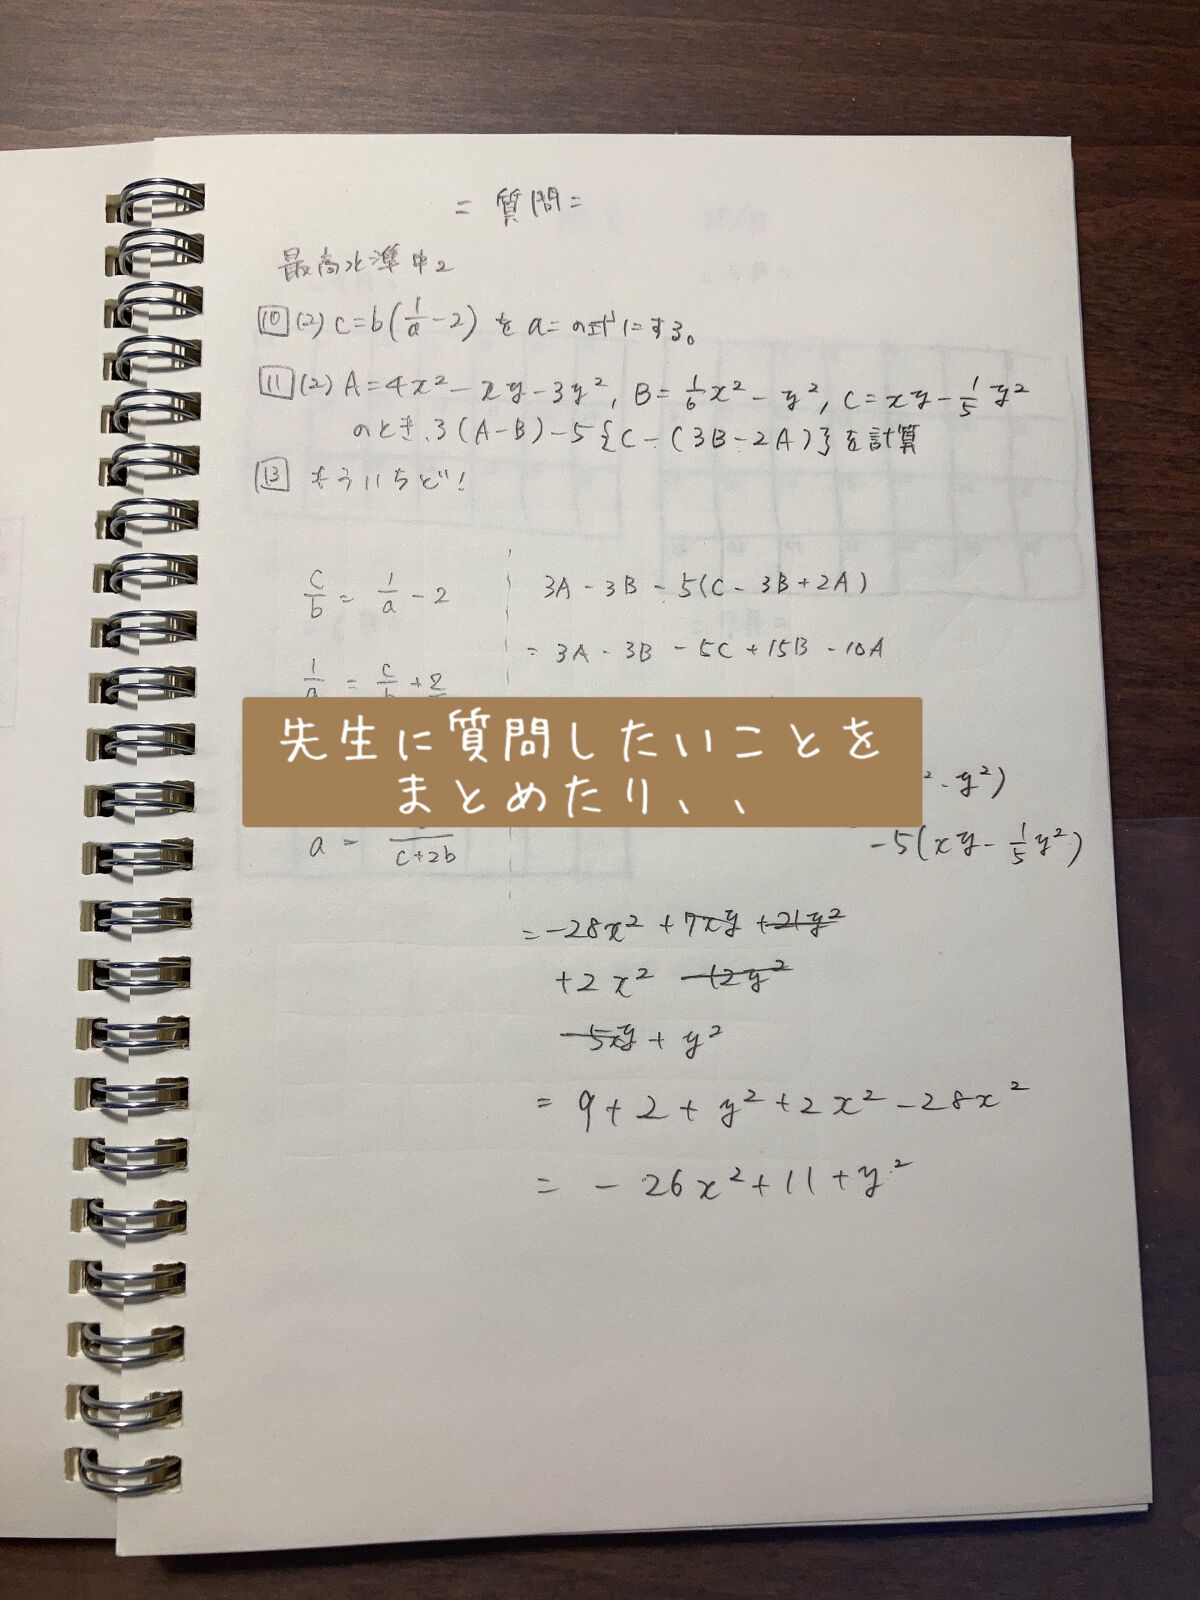 = 質問 =
最高水準中2
10 (2) c=b(1/a-2) を a= の式にする。
11 (2) A=4x²-xy-3y², B=1/6x²-y², C=xy-1/5y²
のとき、3(A-B)-5{C-(3B-2A)}を計算
13 もういちど!
c/b = 1/a - 2
1/a = c/b + 2
a = /(c+2b)
3A-3B-5(C-3B+2A)
= 3A-3B-5C+15B-10A
先生に質問したいことを
まとめたり、、
²-y²)
-5(xy-1/5y²)
=-28x²+7xy+21y²
+2x² -12y²
-5xy+y²
= 9+2+y²+2x²-28x²
= -26x²+11+y²